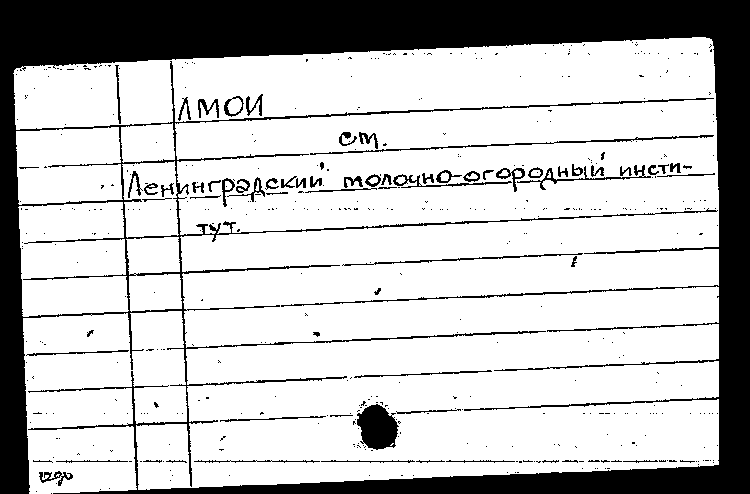 ЛМОИ
см.
Ленинградский молочно-огородный инсти-
тут.